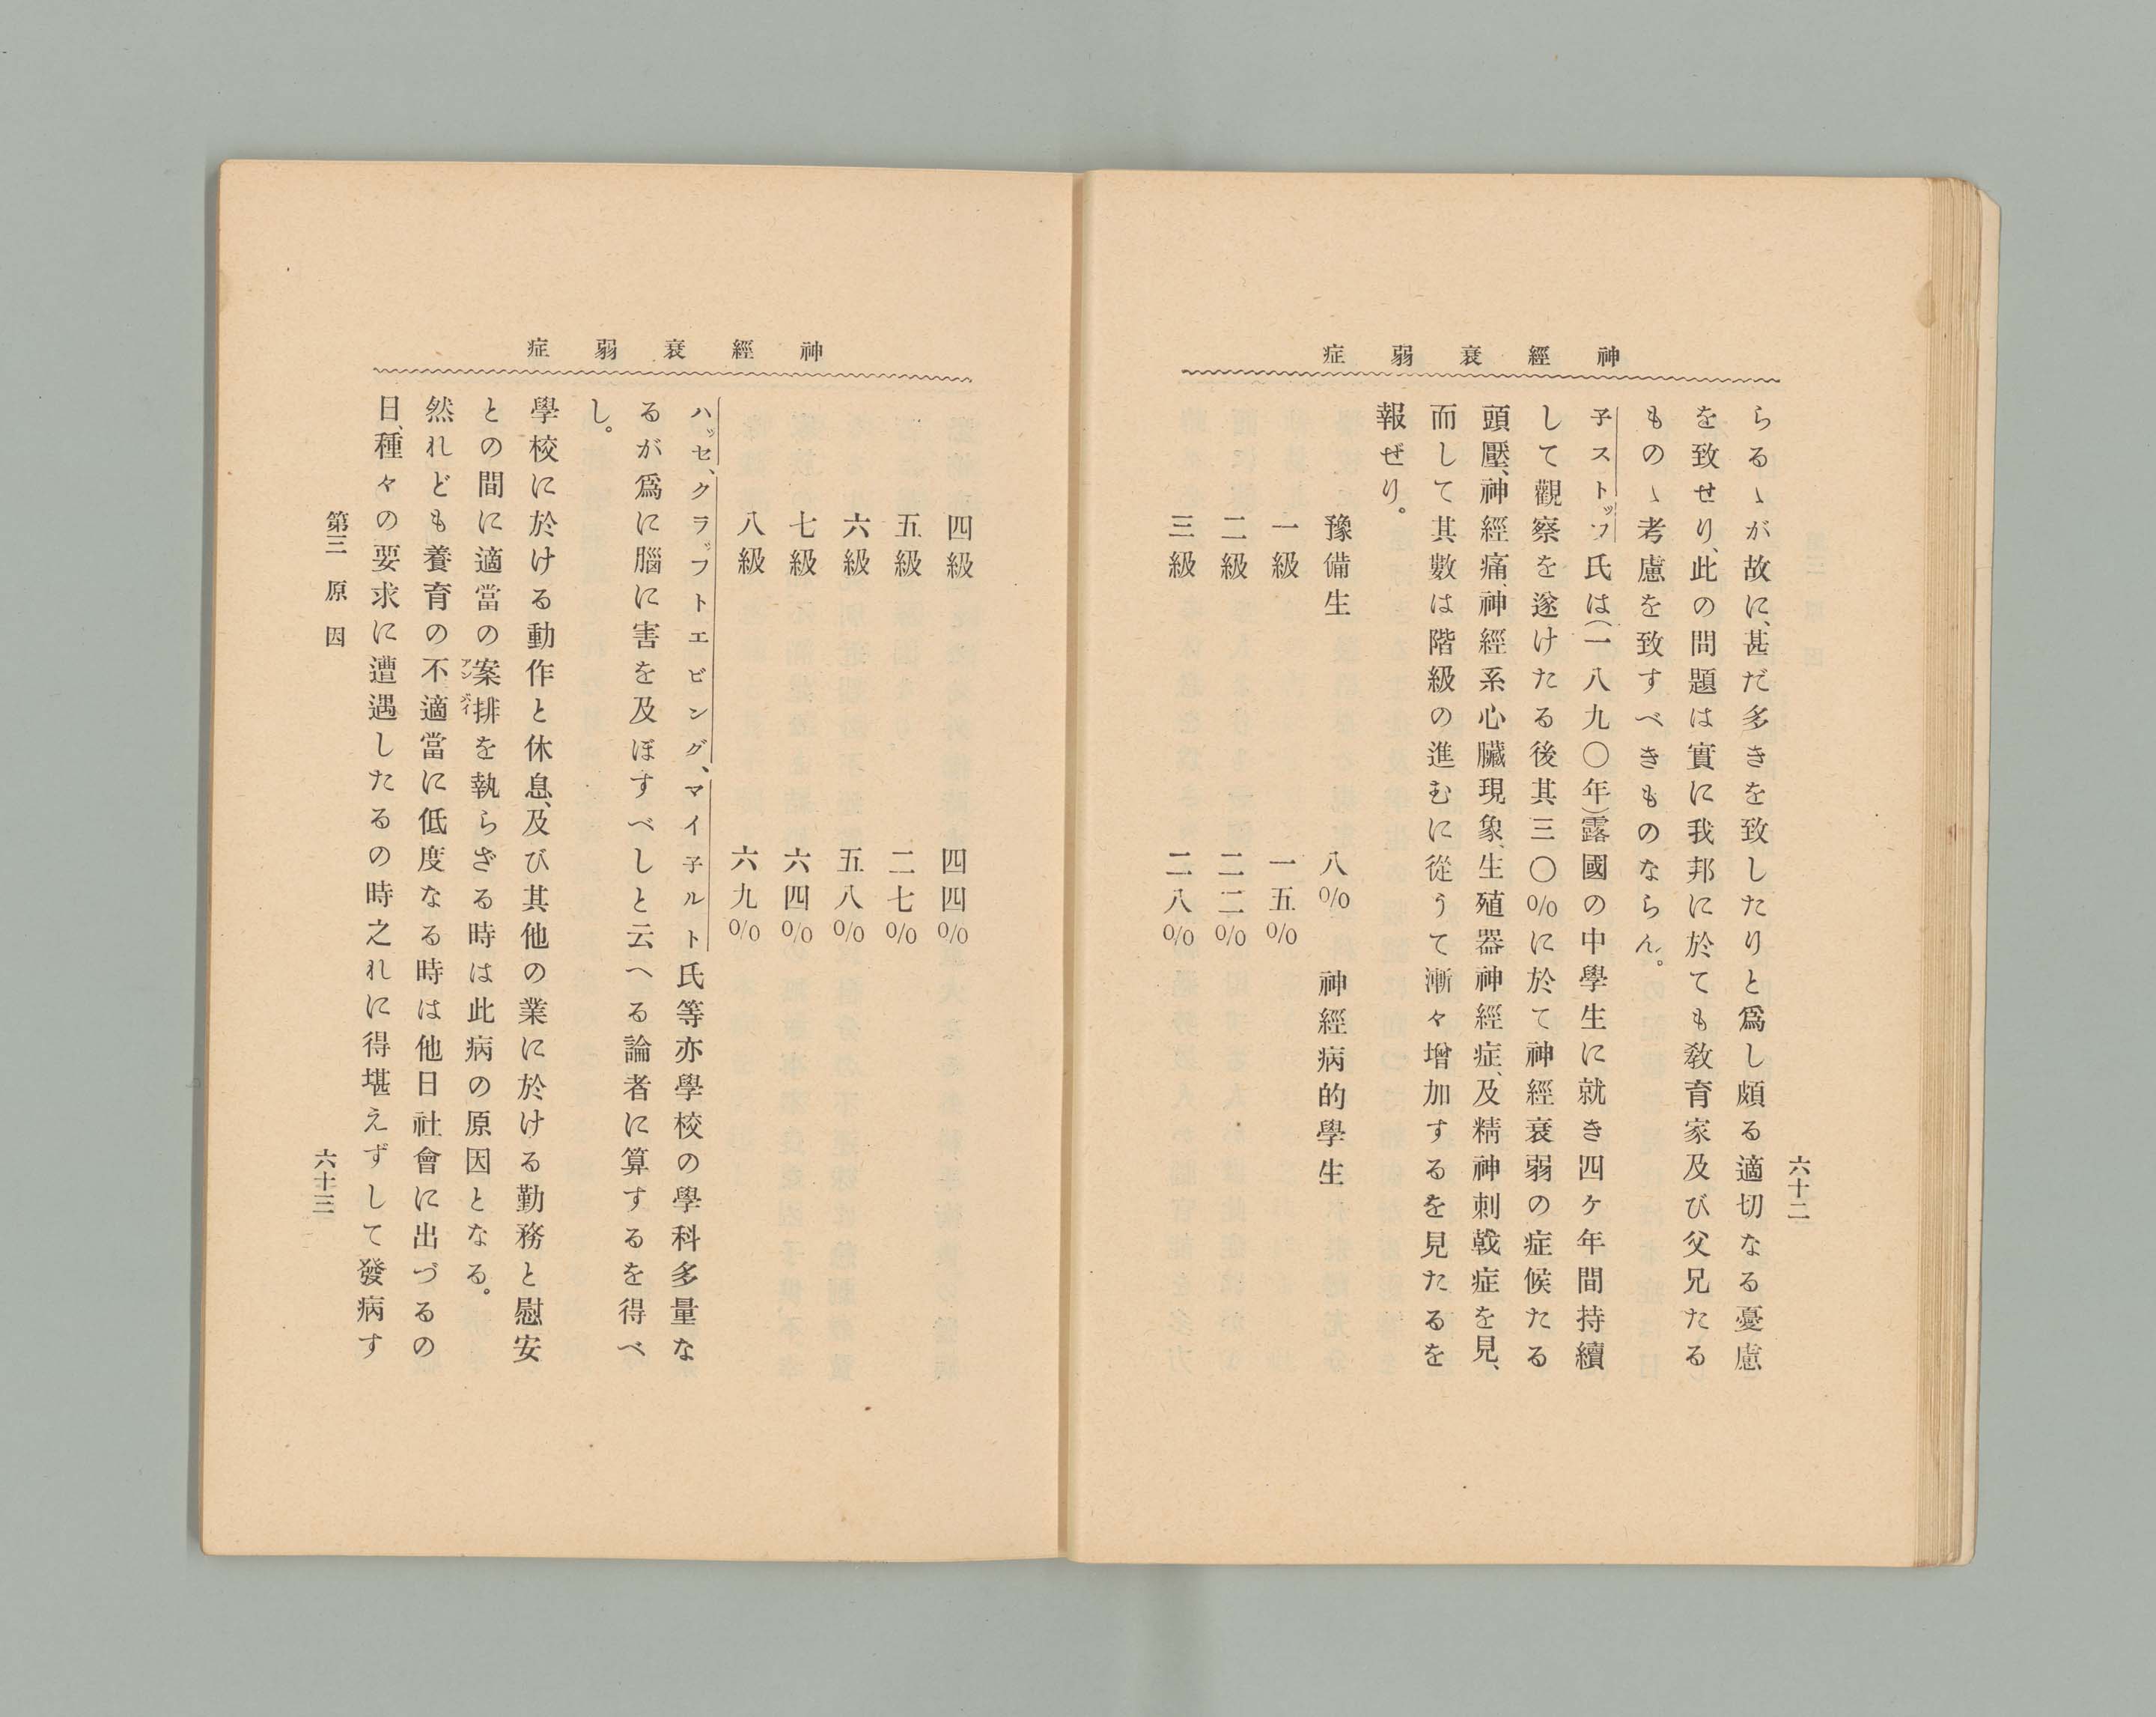 神經衰弱症
六十二
らるゝが故に、甚だ多きを致したりと爲し頗る適切なる憂慮
を致せり、此の問題は實に我邦に於ても敎育家及び父兄たる
もの〻考慮を致すべきものならん。
子ストッフ氏は(一八九〇年)露國の中學生に就き四ケ年間持續
して觀察を遂けたる後其三〇%に於て神經衰弱の症候たる
頭壓、神經痛、神經系心臟現象、生殖器神經症、及精神刺戟症を見、
而して其數は階級の進むに從うて漸々增加するを見たるを
報ぜり。
豫備生 八% 神經病的學生
一級 一五%
二級 二二%
三級 二八%
神經衰弱症
四級 四四%
五級 二七%
六級 五八%
七級 六四%
八級 六九%
ハッセ、クラッフトエビング、マイ子ルト氏等亦學校の學科多量な
るが爲に腦に害を及ぼすべしと云へる論者に算するを得べ
し。
學校に於ける動作と休息、及び其他の業に於ける勤務と慰安
との間に適當の案排を執らざる時は此病の原因となる。
アンバイ
然れども養育の不適當に低度なる時は他日社會に出づるの
日、種々の要求に遭遇したるの時之れに得堪えずして發病す
第三 原因
六十三